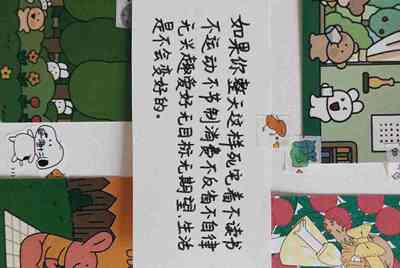 如果你整天这样死宅着不读书
不运动不节制消费不反省不自律
无兴趣爱好无目标无期望、生活
是不会变好的。